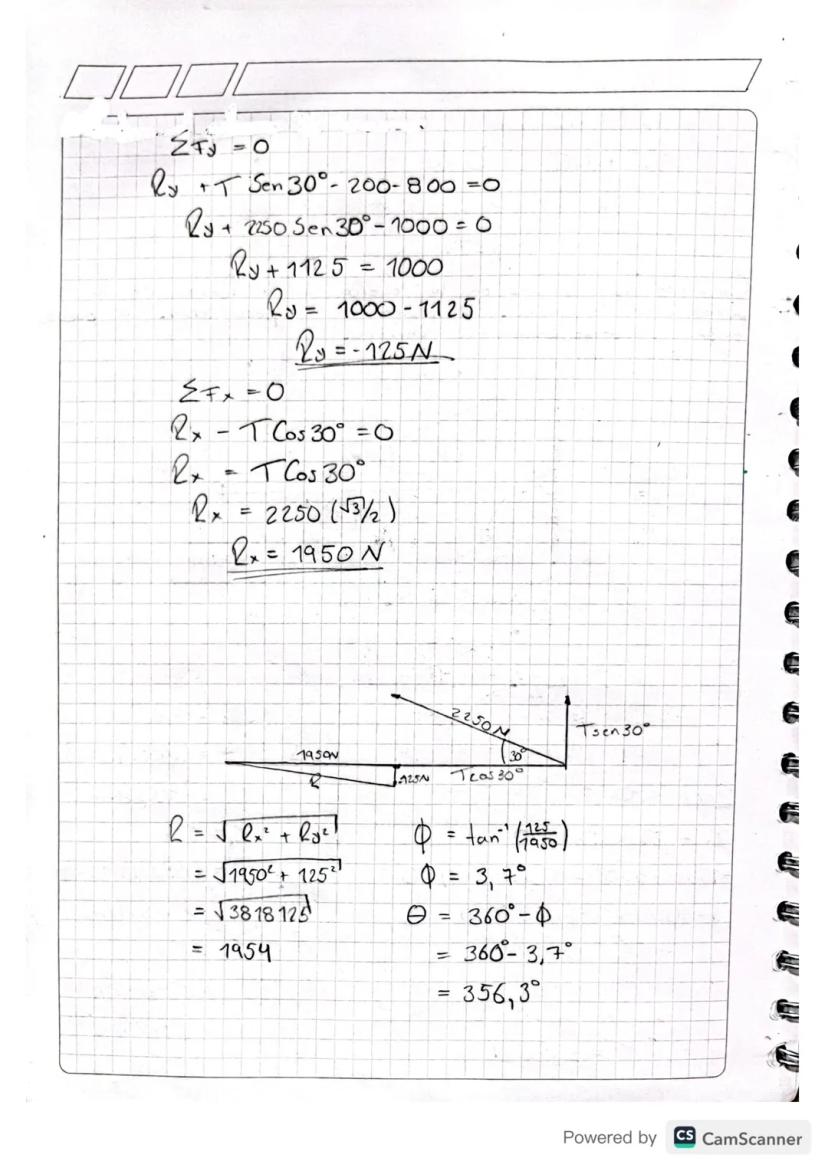 ΣFy = 0
Ry + T Sen 30° - 200 - 800 = 0
Ry + 2250 Sen 30° - 1000 = 0
Ry + 1125 = 1000
Ry = 1000 - 1125
Ry = -125 N
ΣFx = 0
Rx - T Cos 30° = 0
Rx = T Cos 30°
Rx = 2250 (√3/2)
Rx = 1950 N
2250 N
Tsen 30°
1950N
30°
R
125N
Tcos 30°
R = √(Rx² + Ry²)
= √(1950² + 125²)
= √3818125
= 1954
ϕ = tan⁻¹ (125/1950)
ϕ = 3,7°
θ = 360° - ϕ
= 360° - 3,7°
= 356,3°
Powered by CS CamScanner